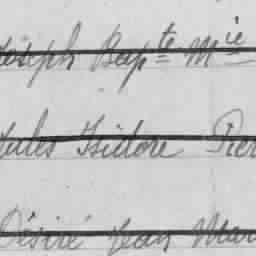 Joseph Bapte Mie
Jules Isidore Pier
Désiré Jean Mari